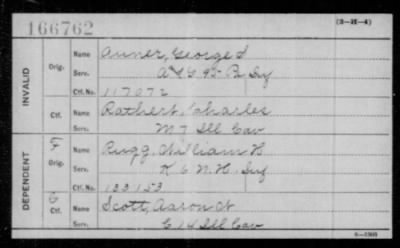 166762
(3-II-4)
INVALID
Orig.
Name Auner, George S
Serv. A & G 95 Pa Inf
Ctf. No. 117072
Ctf.
Name Rathert, Charles
Serv. M 7 Ill Cav
DEPENDENT
Orig.
Name Rugg, William H
Serv. K 6 N.H. Inf
Ctf. No. 133153
Ctf.
Name Scott, Aaron N
Serv. C 14 Ill Cav